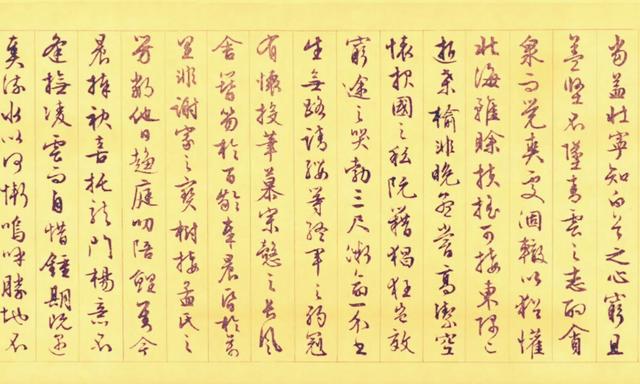 當益壯寧知白首之心窮且
益堅不墜青雲之志酌貪
泉而覺爽處涸轍以猶懽
北海雖賒扶搖可接東隅已
逝桑榆非晚孟嘗高潔空
懷報國之阮籍猖狂豈效
窮途之哭勃三尺微命一介書
生無路請纓等終軍之弱冠
有懷投筆慕宗愨之長風
舍簪笏於百齡奉晨昏於萬
里非謝家之寶樹接孟氏之
芳鄰他日趨庭叨陪鯉對今
晨捧袂喜托龍門楊意不
逢撫凌雲而自惜鍾期既遇
奏流水以何慚嗚呼勝地不